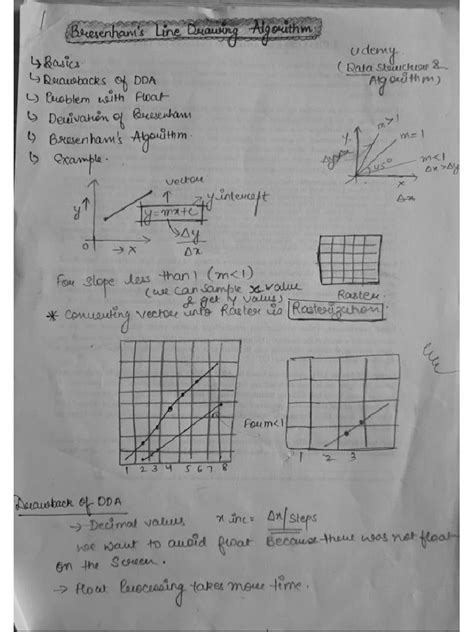 Bresenham's Line Drawing Algorithm
↳ Basics
↳ Drawbacks of DDA
↳ Problem with Float
↳ Derivation of Bresenham
↳ Bresenham's Algorithm.
↳ Example.
Udemy
(Data Structure &
Algorithm)
y m>1
m=1
Δy>Δx
45°
m<1
Δx>Δy
x
Δx
vector
y intercept
y↑
y=mx+c
Δy
Δx
0 → x
For slope less than 1 (m<1)
(we can sample x value
& get y value)
Raster
* Converting vector into Raster is Rasterization
For m<1
1 2 3 4 5 6 7 8
1 2 3
Drawback of DDA
→ Decimal values x inc = Δx/steps
we want to avoid float Because there was not float
on the Screen.
→ Float Processing takes more time.